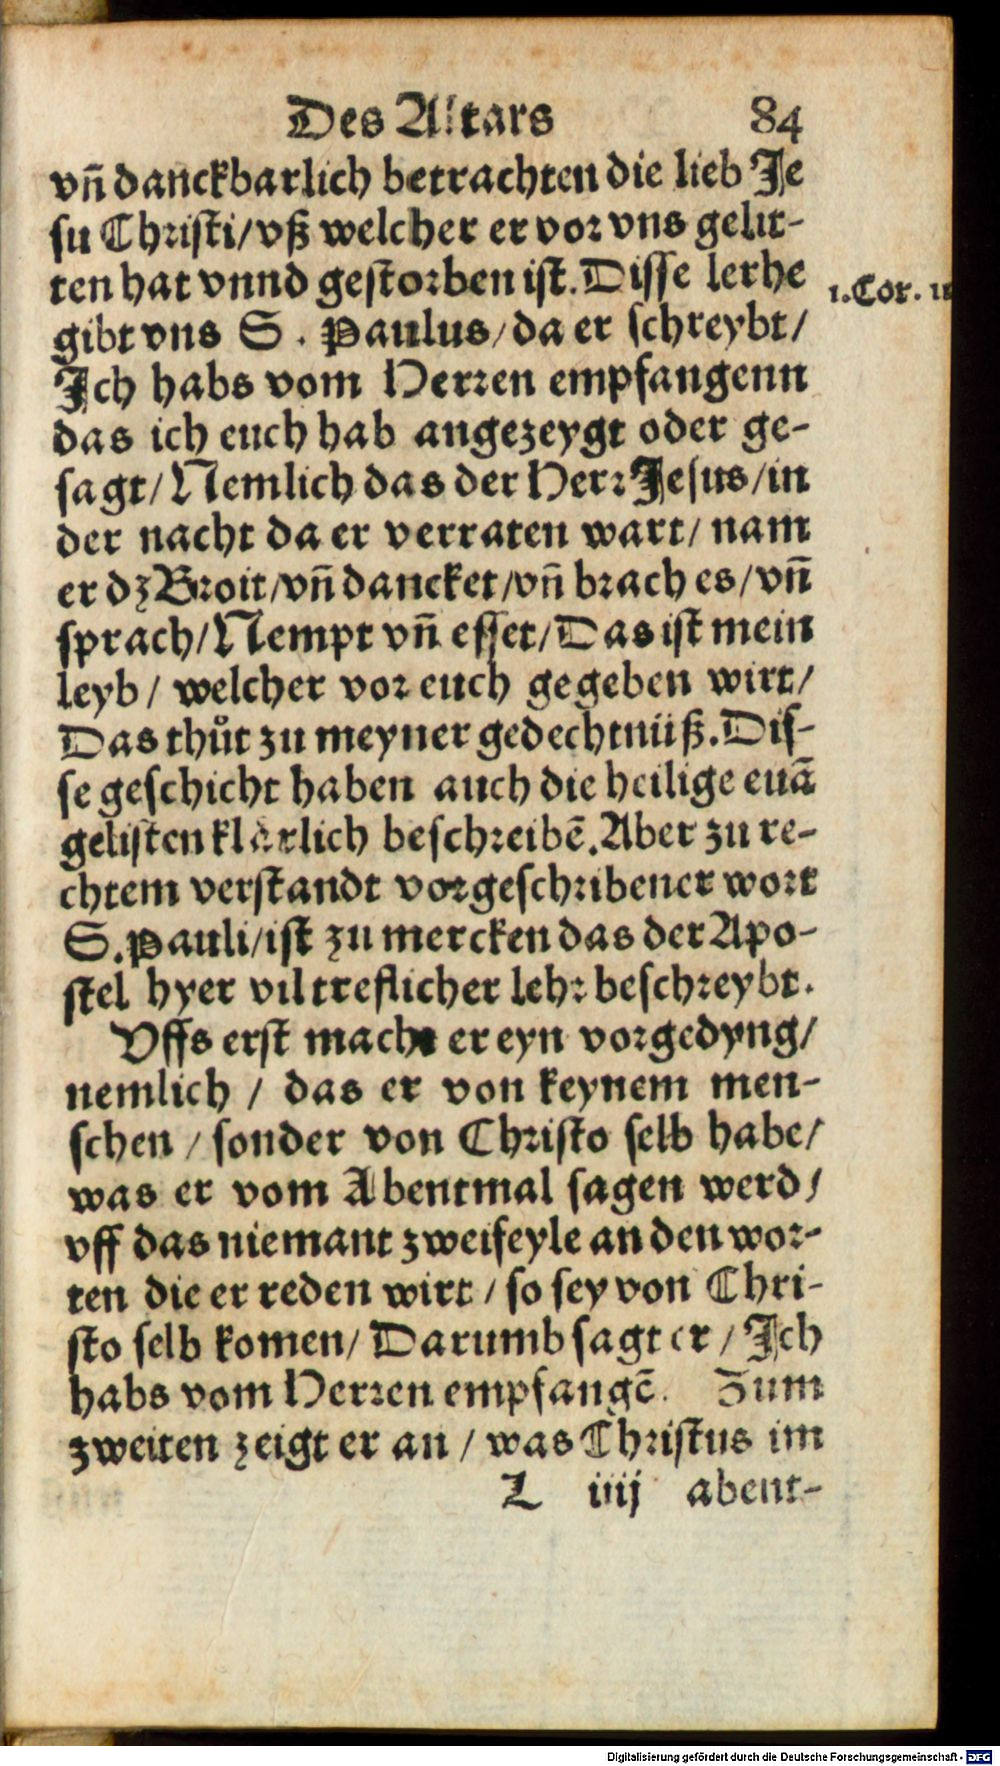 Des Altars 84
vñ danckbarlich betrachten die lieb Je
su Christi/vß welcher er vor vns gelit-
ten hat vnnd gestorben ist. Disse lerhe
1.Cor. 11
gibt vns S. Paulus/da er schreybt/
Ich habs vom Herren empfangenn
das ich euch hab angezeygt oder ge-
sagt/Nemlich das der Herr Jesus/in
der nacht da er verraten wart/ nam
er dz Broit/vñ dancket/vñ brach es/vñ
sprach/Nempt vñ esset/Das ist mein
leyb/ welcher vor euch gegeben wirt/
Das thůt zu meyner gedechtnüß. Dis-
se geschicht haben auch die heilige euã
gelisten klarlich beschreibẽ. Aber zu re-
chtem verstandt vorgeschribener wort
S. Pauli/ist zu mercken das der Apo-
stel hyer vil treflicher lehr beschreybt.
Vffs erst macht er eyn vorgedyng/
nemlich / das er von keynem men-
schen / sonder von Christo selb habe/
was er vom Abentmal sagen werd/
vff das niemant zweifeyle an den wor-
ten die er reden wirt / so sey von Chri-
sto selb komen/ Darumb sagt er / Ich
habs vom Herren empfangẽ. Zum
zweiten zeigt er an / was Christus im
L iiij abent-
Digitalisierung gefördert durch die Deutsche Forschungsgemeinschaft - DFG